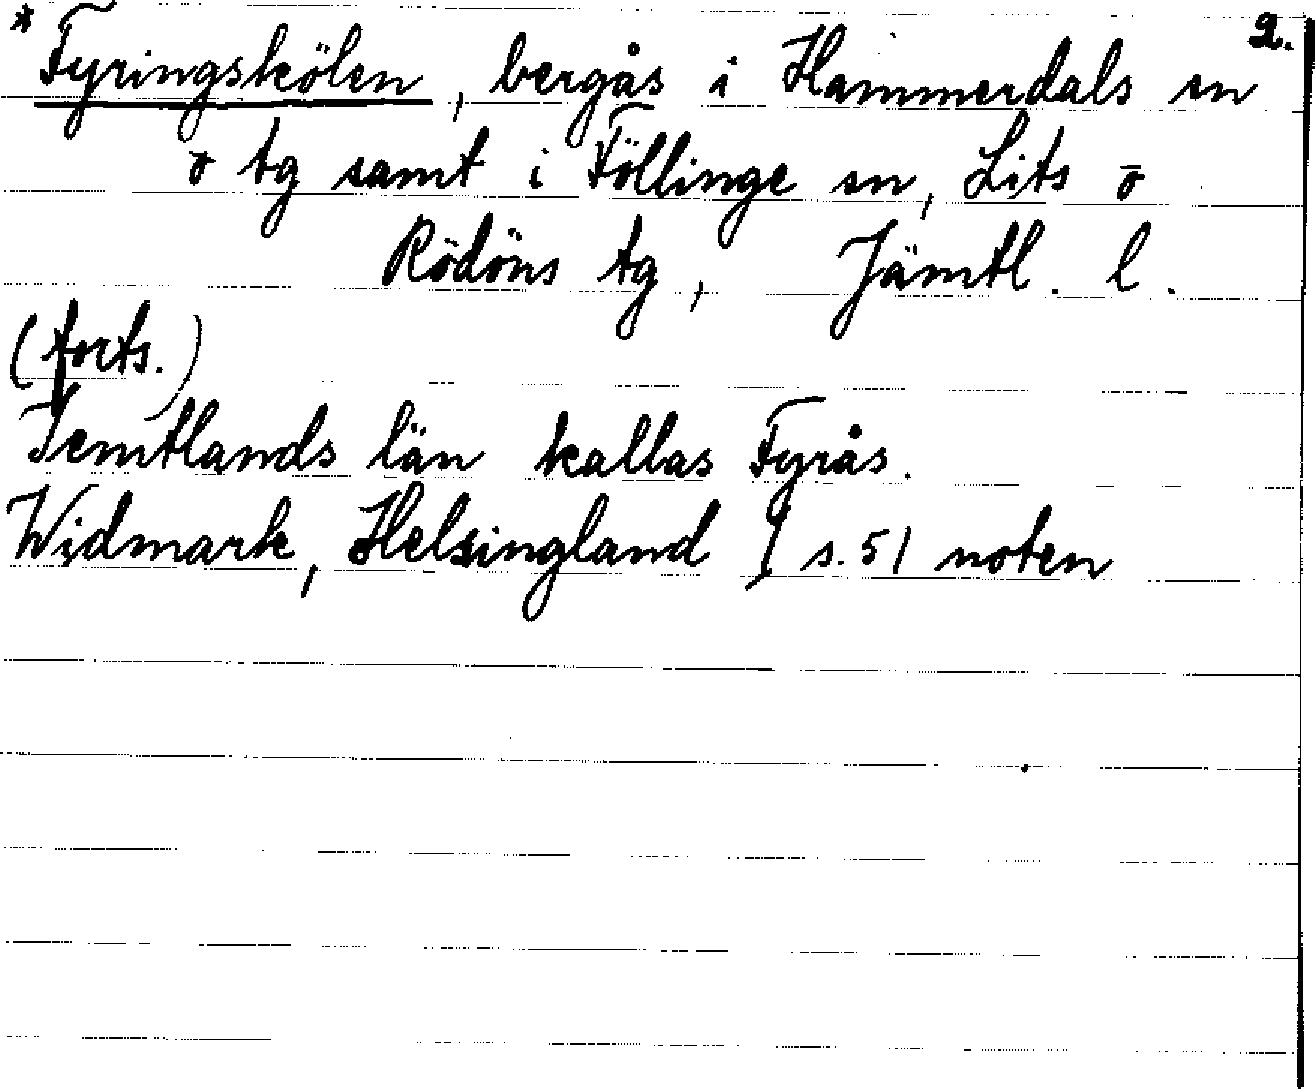 * Fyringskölen, bergås i Hammerdals sn 2.
o tg samt i Föllinge sn, Lits o
Rödöns tg, Jämtl. l.
(forts.)
Jemtlands län kallas Fyrås.
Widmark, Helsingland I s. 51 noten